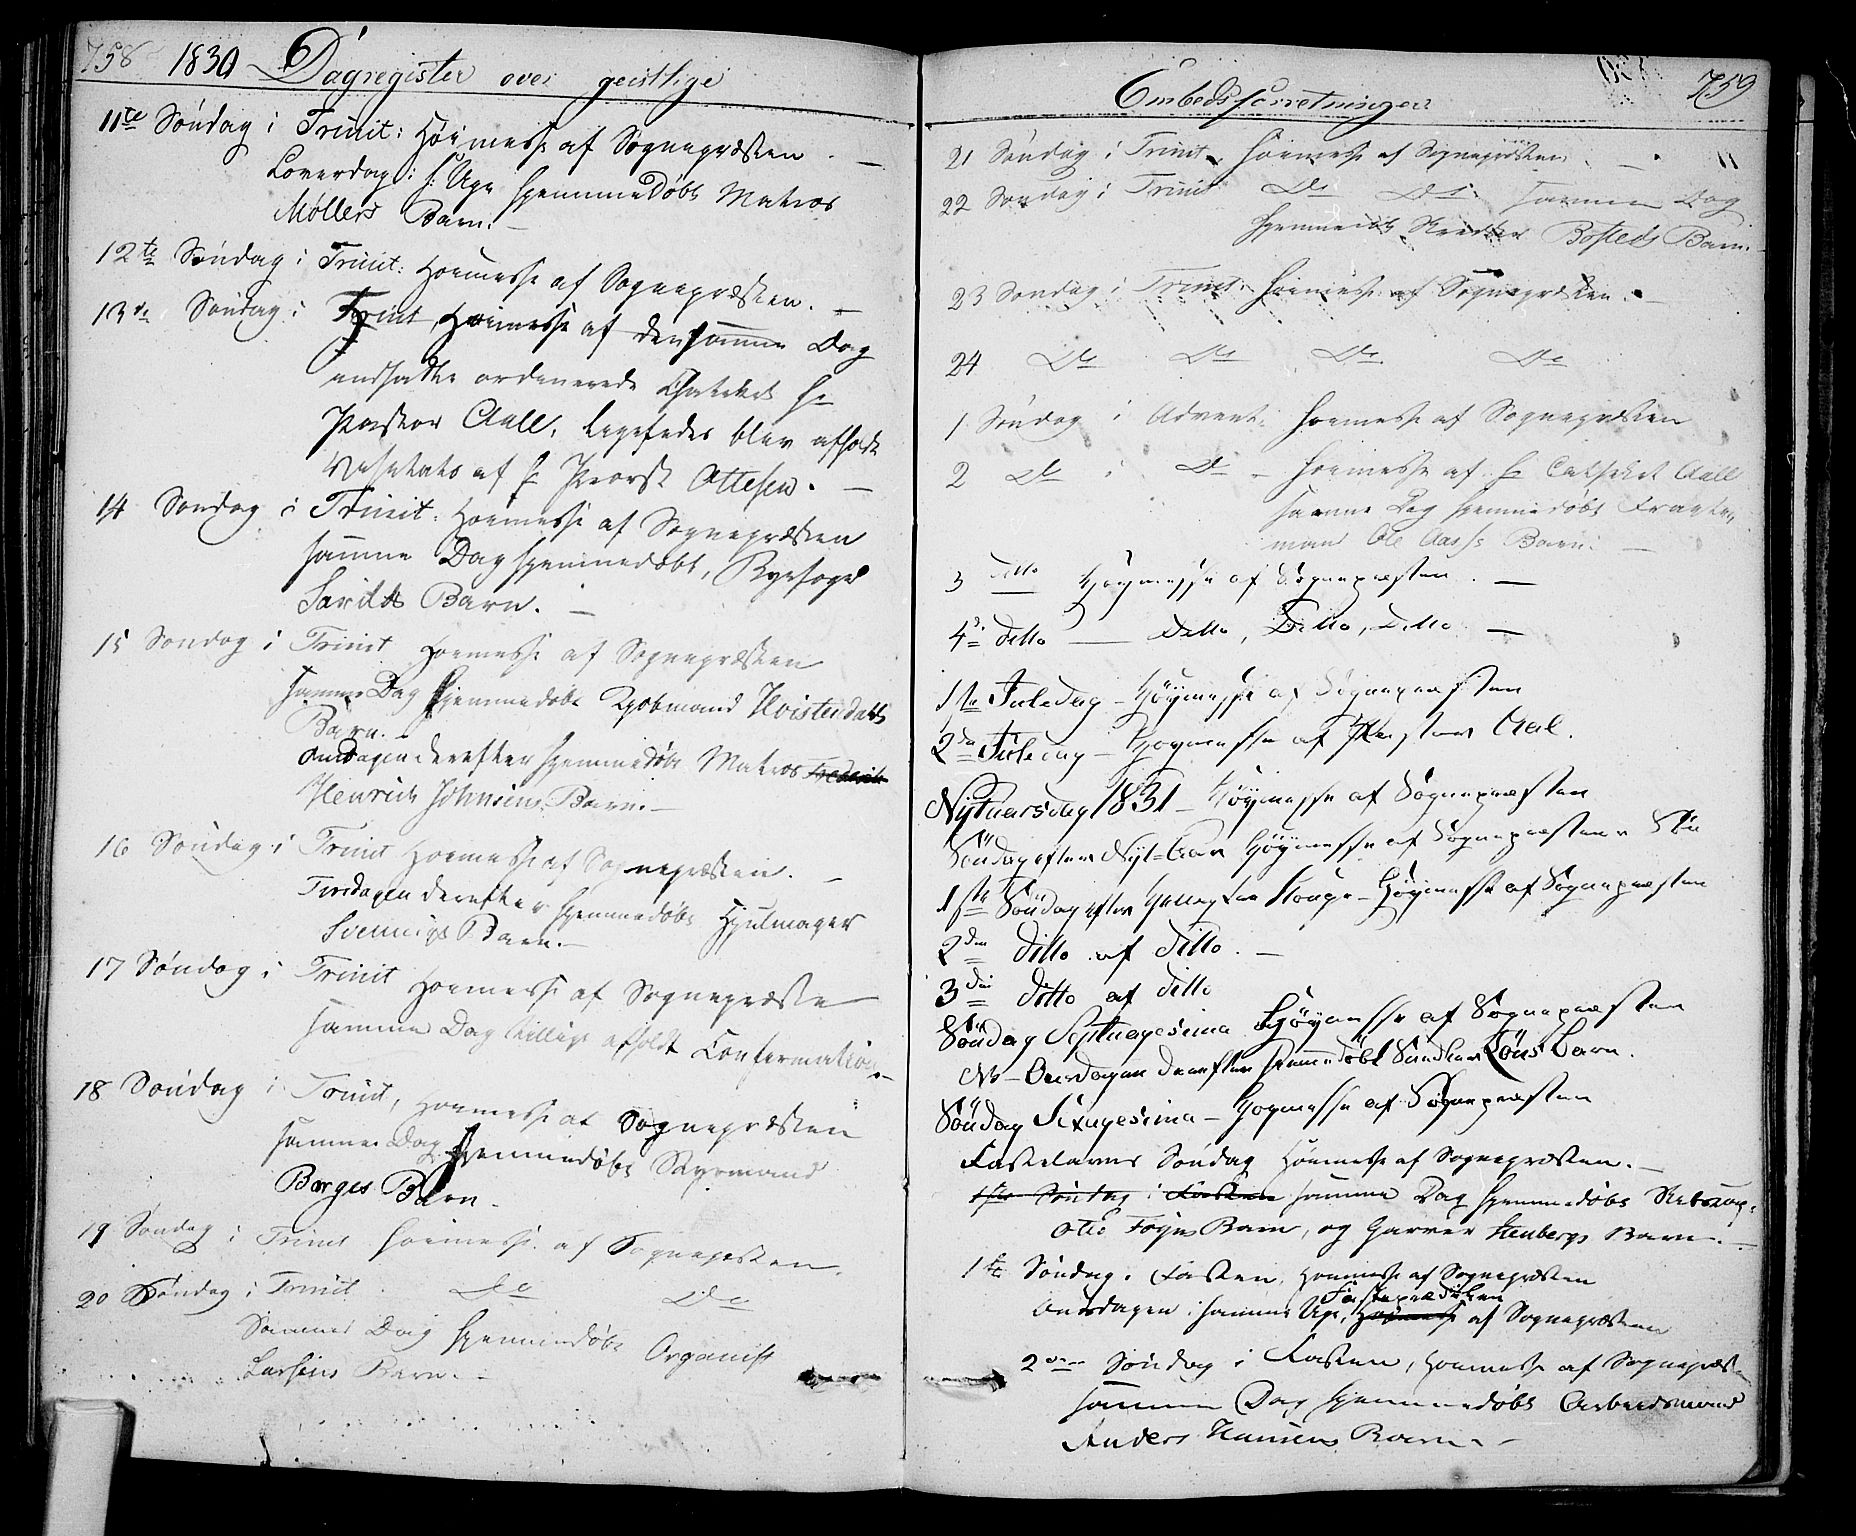 758 1830 Dagregister over geistlige
11te Søndag i Trinit: Høimesse af Sognepræsten. —
Løverdag i s: Uge hjemmedøbt Matros
Møllers Barn. —
12te Søndag i Trinit: Høimesse af Sognepræsten. —
13de Søndag i Trinit, Høimesse af den samme Dag
indsatte ordenerede Chatekét Hr
Pastor Aall, ligesledes blev afholdt
Visitats af Hr Provst Ottesen. —
14 Søndag i Trinit: Høimesse af Sognepræsten
samme Dag hjemmedøbt,
Barn. —
15 Søndag i Trinit Høimesse af Sognepræsten
samme Dag hjemmedøbt Kjøbmand Hoisterdatts
Barn. —
Onsdagen derefter hjemmedøbt Matros
Henrich Johnsens Barn. —
16 Søndag i Trinit Høimesse af Sognepræsten. —
Tirsdagen derefter hjemmedøbt Hjulmager
Svennigs Barn. —
17 Søndag i Trinit Høimesse af Sognepræste
samme Dag tillige afholdt Confermation. —
18 Søndag i Trinit, Høimesse af Sognepræsten
samme Dag hjemmedøbt Styrmand
Borges Barn.
19 Søndag i Trinit Høimesse af Sognepræsten.
20 Søndag i Trinit Do Do
Sammes Dag hjemmedøbt Organist
Larsens Barn. —
Embedsforretninger 759
21 Søndag i Trinit, Høimesse af Sognepræsten. —
22 Søndag i Trinit Do Do samme Dag
hjemmedøbt Bosteds Barn.
23 Søndag i Trinit. Høimesse af Sognepræsten. —
24 Do Do Do Do
1 Søndag i Advent: Høimesse af Sognepræsten
2 Do i D — Høimesse af Hr Catheket Aall
samme Dag hjemmedøbt
mand Ole Aas's Barn. —
3 ditto Høymesse af Sognepræsten. —
4de ditto — Ditto, Ditto, Ditto —
1ste Juledag — Høymesse af Sognepræsten
2den Juledag — Høymesse af Pastor Aal.
Nytaarsdag 1831 — Høymesse af Sognepræsten
Søndag efter Nyt-Aar Høymesse af Sognepræsten
1ste Søndag efter Hellig tre Konge — Høymesse af Sognepræsten
2den ditto af Ditto. —
3die ditto af ditto
Søndag Septuagesima Høymesse af Sognepræsten
NB — Onsdagen derefter hjemmedøbt Barn.
Søndag Sexagesima — Høymesse af Sognepræsten
Fastelavns Søndag Høimesse af Sognepræsten. —
1ste Søndag i Fasten samme Dag hjemmedøbt
Otto Foyns Barn, og Garver Stenbergs Barn. —
1ste Søndag i Fasten, Høimesse af Sognepræsten
Fasteprædiken
Onsdagen i samme Uge, Høimesse af Sognepræsten
2den Søndag i Fasten, Høimesse af Sognepræst
samme Dag hjemmedøbt Arbeidsmand
Anders Hansens Barn. —